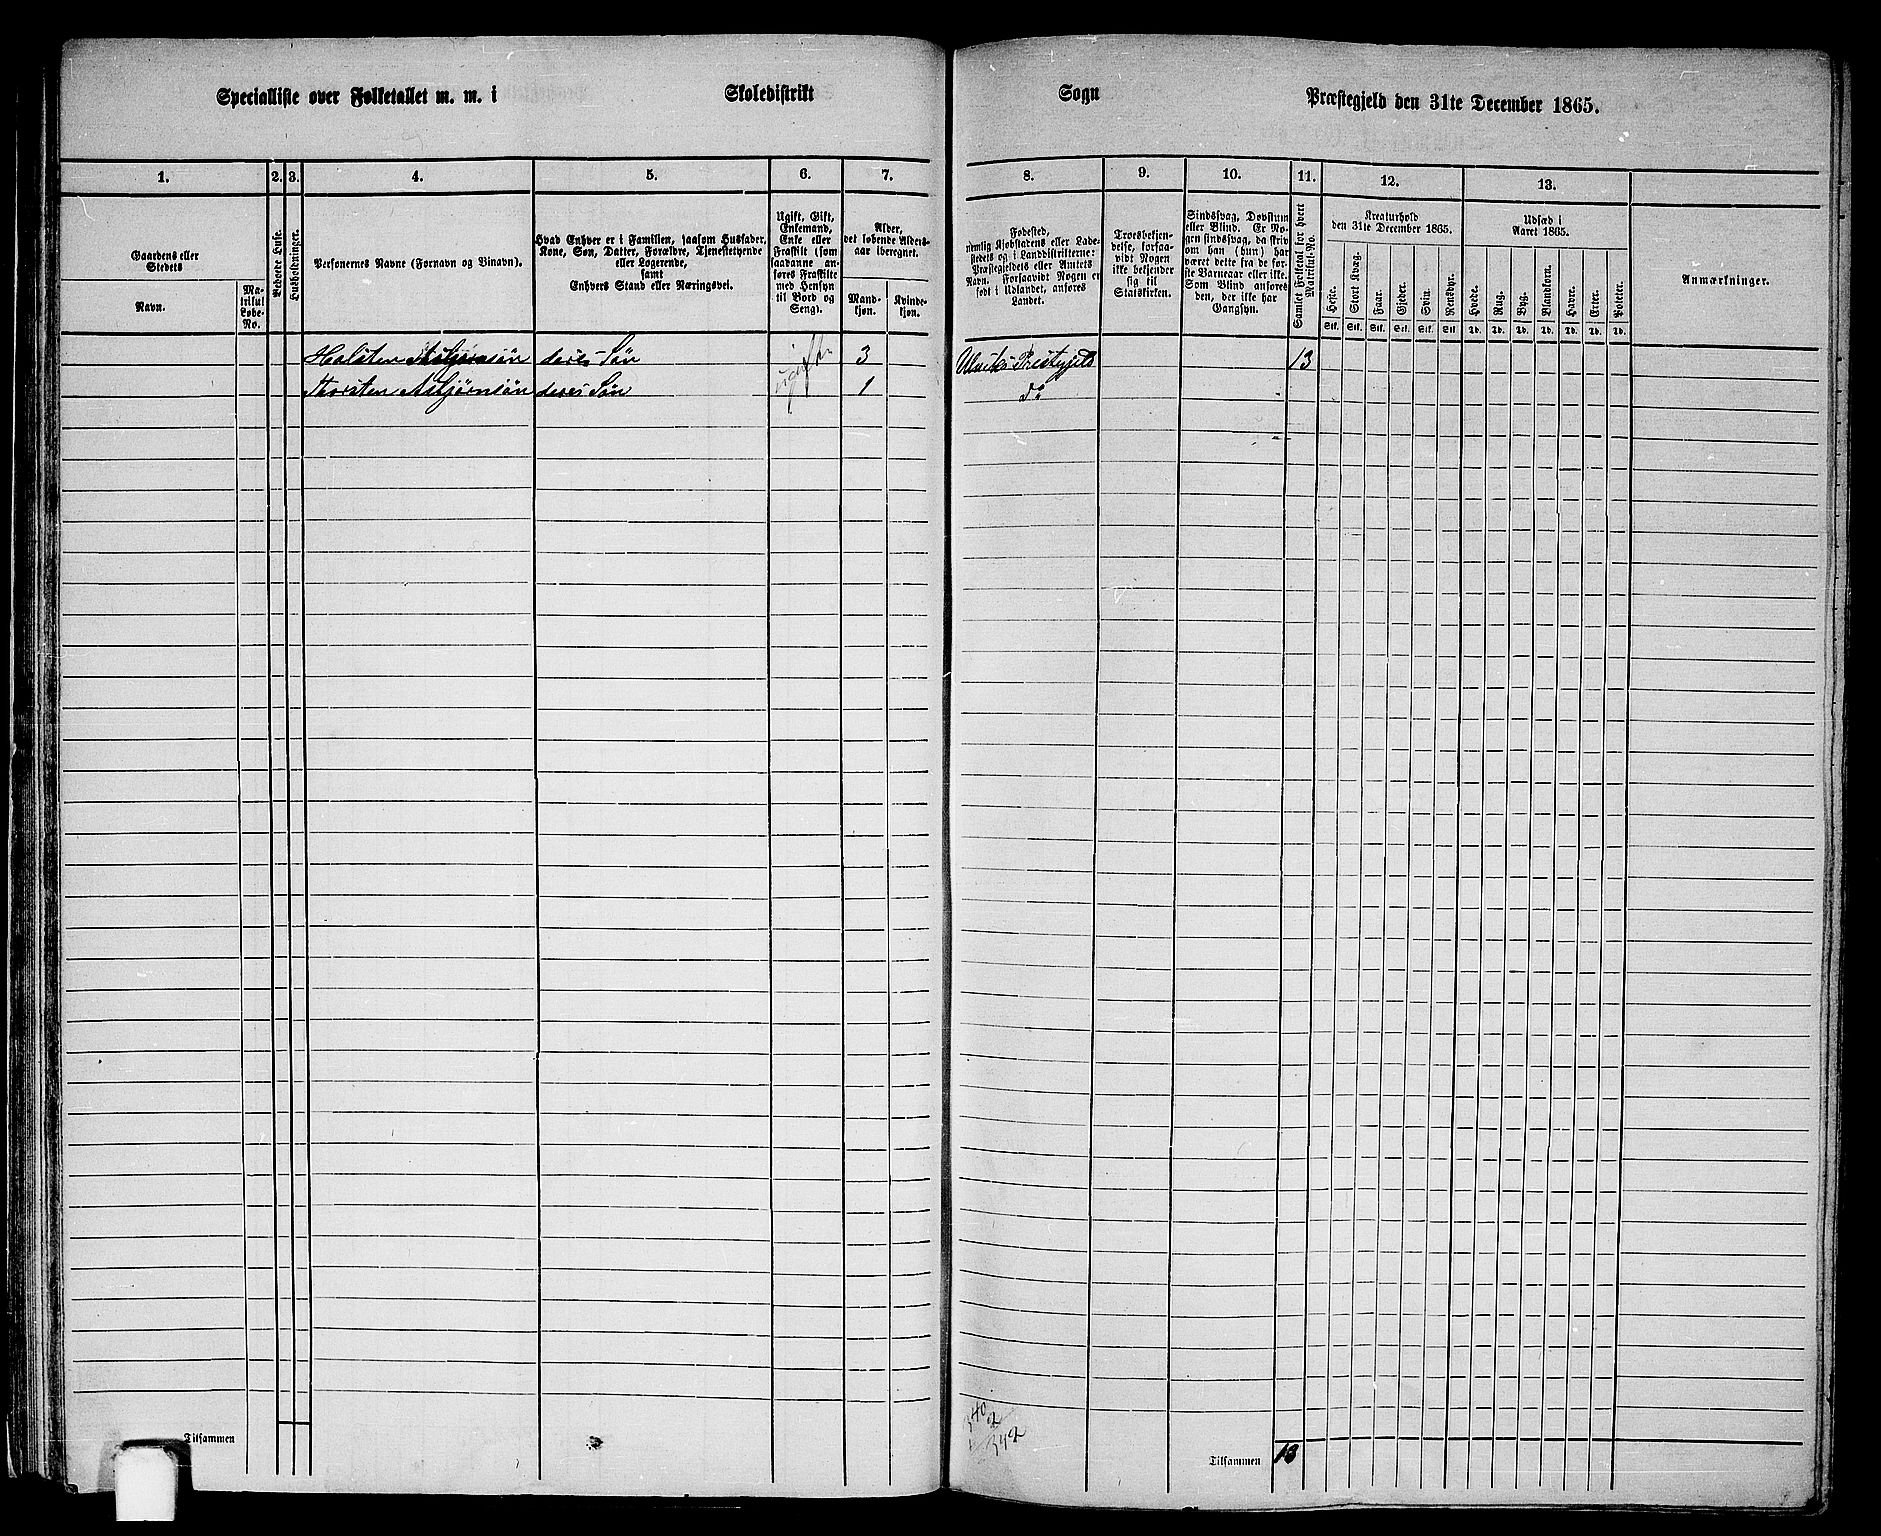 Specialliste over Folketallet m. m. i Skoledistrikt Sogn Præstegjeld den 31te December 1865.
1. 2. 3. 4. 5. 6. 7. 8. 9. 10. 11. 12. 13.
Gaardens eller Stedets
Navn.
Matrikul Løbe-No.
Beboede Huse.
Husholdninger.
Personernes Navne (Fornavn og Binavn).
Hvad Enhver er i Familien, saasom Husfader,
Kone, Søn, Datter, Forældre, Tjenestetyende
eller Logerende,
samt
Enhvers Stand eller Næringsvei.
Ugift, Gift,
Enkemand,
Enke eller
Fraskilt (som
saadanne anføres
Fraskilte
med Hensyn
til Bord og
Seng).
Alder,
det løbende Aldersaar
iberegnet.
Mandkjøn.
Kvindekjøn.
Fødested,
nemlig Kjøbstadens eller Ladestedets
og i Landdistrikterne:
Præstegjeldets eller Amtets
Navn. Forsaavidt Nogen er
født i Udlandet, anføres
Landet.
Troesbekjendelse,
forsaavidt
Nogen
ikke bekjender
sig til
Statskirken.
Sindssvag, Døvstum
eller Blind. Er Nogen
sindssvag, da skriv
om han (hun) har
været dette fra de første
Barneaar eller ikke.
Som Blind anføres
den, der ikke har
Gangsyn.
Samlet Folketal for hvert Matrikul-No.
Kreaturhold
den 31te December 1865.
Heste. Stort Kvæg. Faar. Gjeder. Svin. Rensdyr.
Stk. Stk. Stk. Stk. Stk. Stk.
Udsæd i
Aaret 1865.
Hvede. Rug. Byg. Blandkorn. Havre. Erter. Poteter.
Td. Td. Td. Td. Td. Td. Td.
Anmærkninger.
Halsten Asbjørnsøn deres Søn ugift 3 Præstegjeld 13
Thorsten Asbjørnsøn deres Søn 1 do
340
2
342
Tilsammen
Tilsammen 13